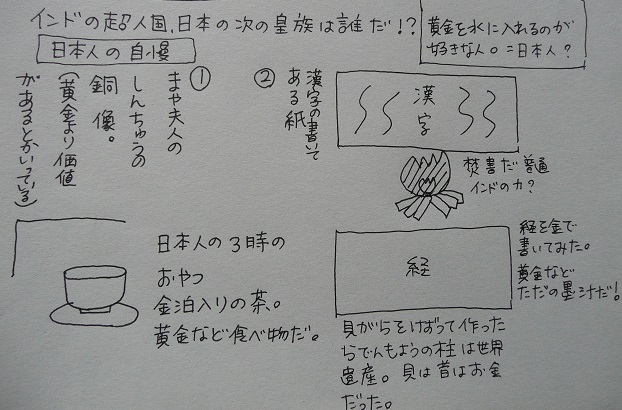 インドの超人国、日本の次の皇族は誰だ!?
黄金を水に入れるのが
好きな人。=日本人?
日本人の自慢
①
まや夫人の
しんちゅうの
銅像。
(黄金より価値
があるとかいっている)
②
漢字の書いて
ある紙
漢字
焚書だ普通
インドの力?
経を金で
書いてみた。
黄金など
ただの墨汁だ!
経
日本人の3時の
おやつ
金泊入りの茶。
黄金など食べ物だ。
貝がらをけずって作った
らでんもようの柱は世界
遺産。貝は昔はお金
だった。